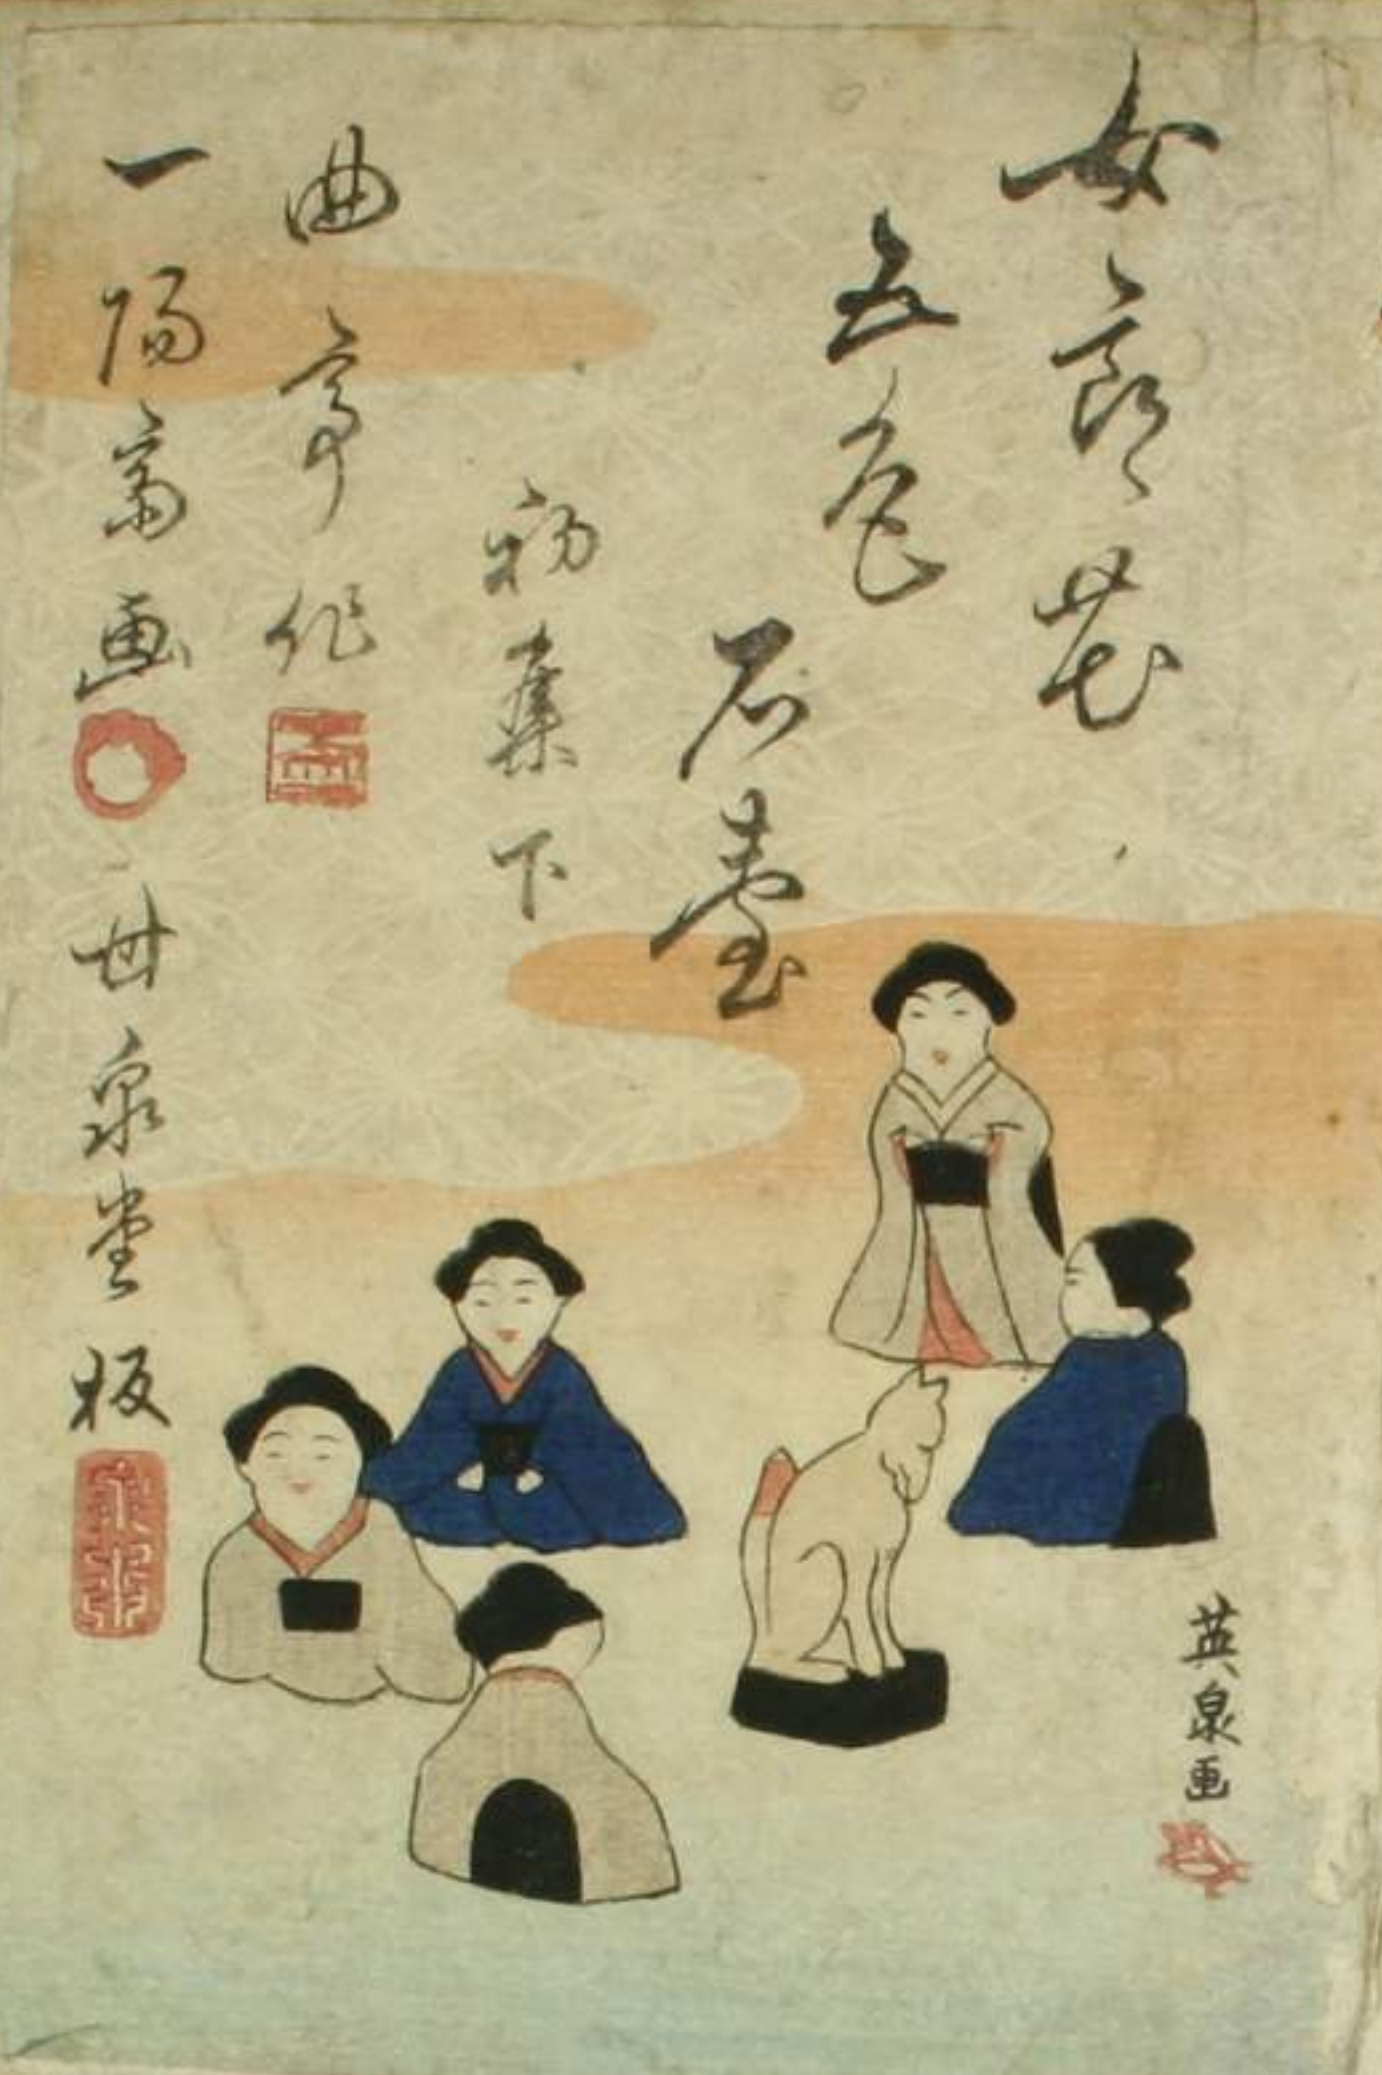 女郎花
五色
石臺
初集下
曲亭作
一陽斎画
甘泉堂板
英泉画